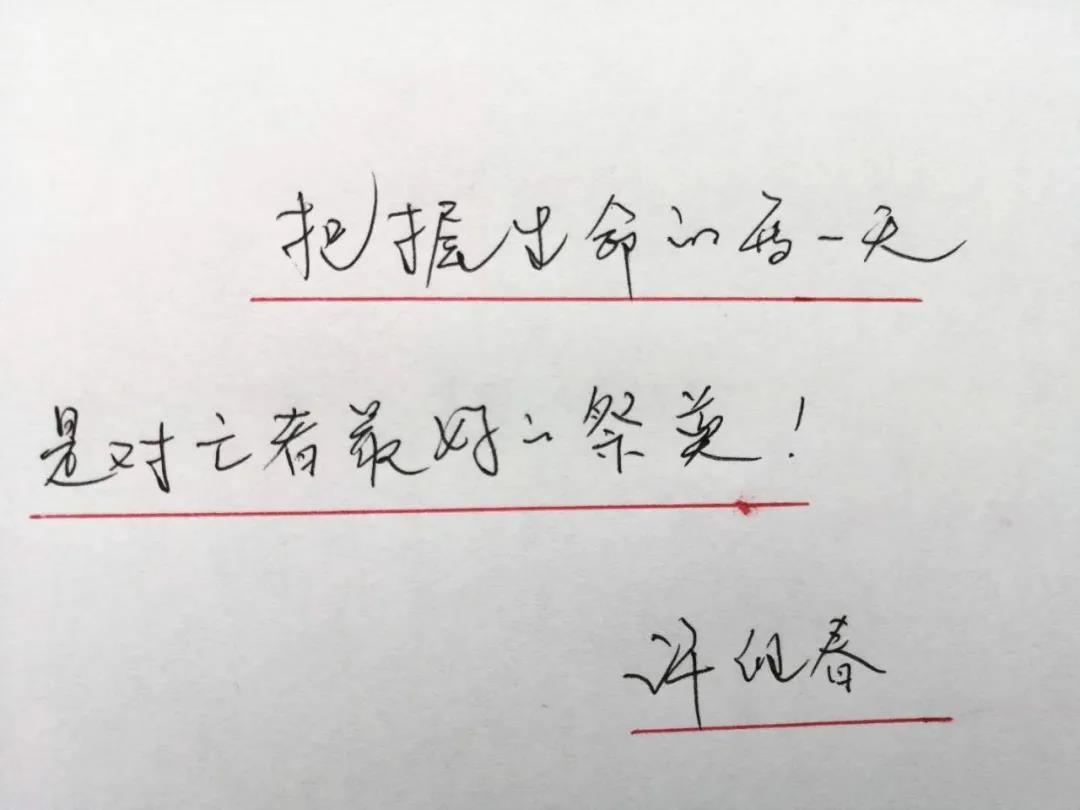 把握生命的每一天
是对亡者最好的祭奠！
许伯春